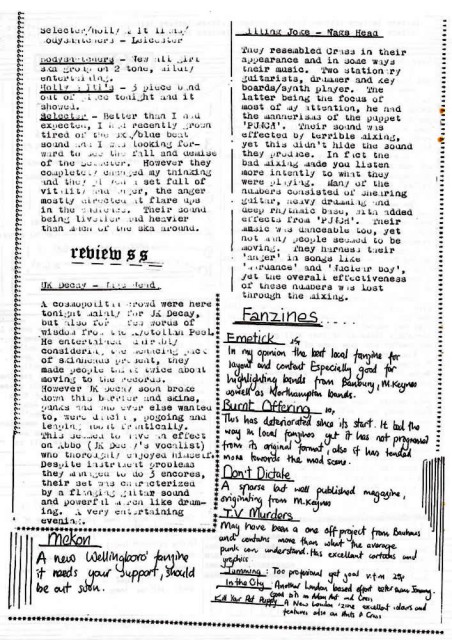 Selector/Holly & It
Bodysnatchers - Leicester
Bodysnatchers - New all girl
ska group on 2 tone,
entertaining.
Holly & - 3 piece band
out of place tonight and it
showed.
Selector - Better than I had
expected, I had recently grown
tired of the /blue beat
sound and I was looking for-
ward to see the fall and demise
of the Selector. However they
completely changed my thinking
and they played a set full of
vitality and anger, the anger
mostly directed at flare ups
in the audience. Their sound
being livelier and heavier
than much of the ska around.
reviews s
UK Decay -
A cosmopolitan crowd were here
tonight mainly for UK Decay,
but also for few words of
wisdom from the Peel.
He entertained
considering the
of skinheads present, they
made people think twice about
moving to the records.
However UK Decay soon broke
down this barrier and skins,
punks and who ever else wanted
to, were pogoing and
leaping about frantically.
This seemed to have an effect
on Abbo (UK Decay's vocalist)
who thoroughly enjoyed himself.
Despite instrument problems
they managed to do 3 encores,
their set was characterized
by a flanging guitar sound
and powerful like drum-
ming. A very entertaining
evening.
Mekon
A new Wellingboro' fanzine
it needs your support, should
be out soon.
Killing Joke - Nags Head
They resembled Crass in their
appearance and in some ways
their music. Two stationary
guitarists, drummer and key
boards/synth player. The
latter being the focus of
most of my attention, he had
the mannerisms of the puppet
'PUNCH'. Their sound was
effected by terrible mixing,
yet this didn't hide the sound
they produce. In fact the
bad mixing made you listen
more intently to what they
were playing. Many of the
numbers consisted of shearing
guitar, heavy drumming and
deep rhythmic base, with added
effects from 'PUNCH'. Their
music was danceable too, yet
not many people seemed to be
moving. They harness their
'anger' in songs like
'Wardance' and 'Nuclear Boy',
yet the overall effectiveness
of these numbers was lost
through the mixing.
Fanzines....
Emetick
In my opinion the best local fanzine for
layout and content. Especially good for
highlighting bands from Banbury, M.Keynes
aswell as Northampton bands.
Burnt Offering
This has deteriorated since its start. It led the
way in local fanzines yet it has not progressed
from its original format, also it has tended
more towards the mod scene.
Don't Dictate
A sparse but well published magazine,
originating from M.Keynes
T.V. Murders
May have been a one off project from Bauhaus
and contains more than what the average
punk can understand. Has excellent cartoons and
graphics
Jamming: Too professional yet good v.f.m 25p
In the City Another London based effort
good on Adam Ant and Crass
Kill Your Pet Puppy A New London 'zine excellent colours and
features also on Ants & Crass